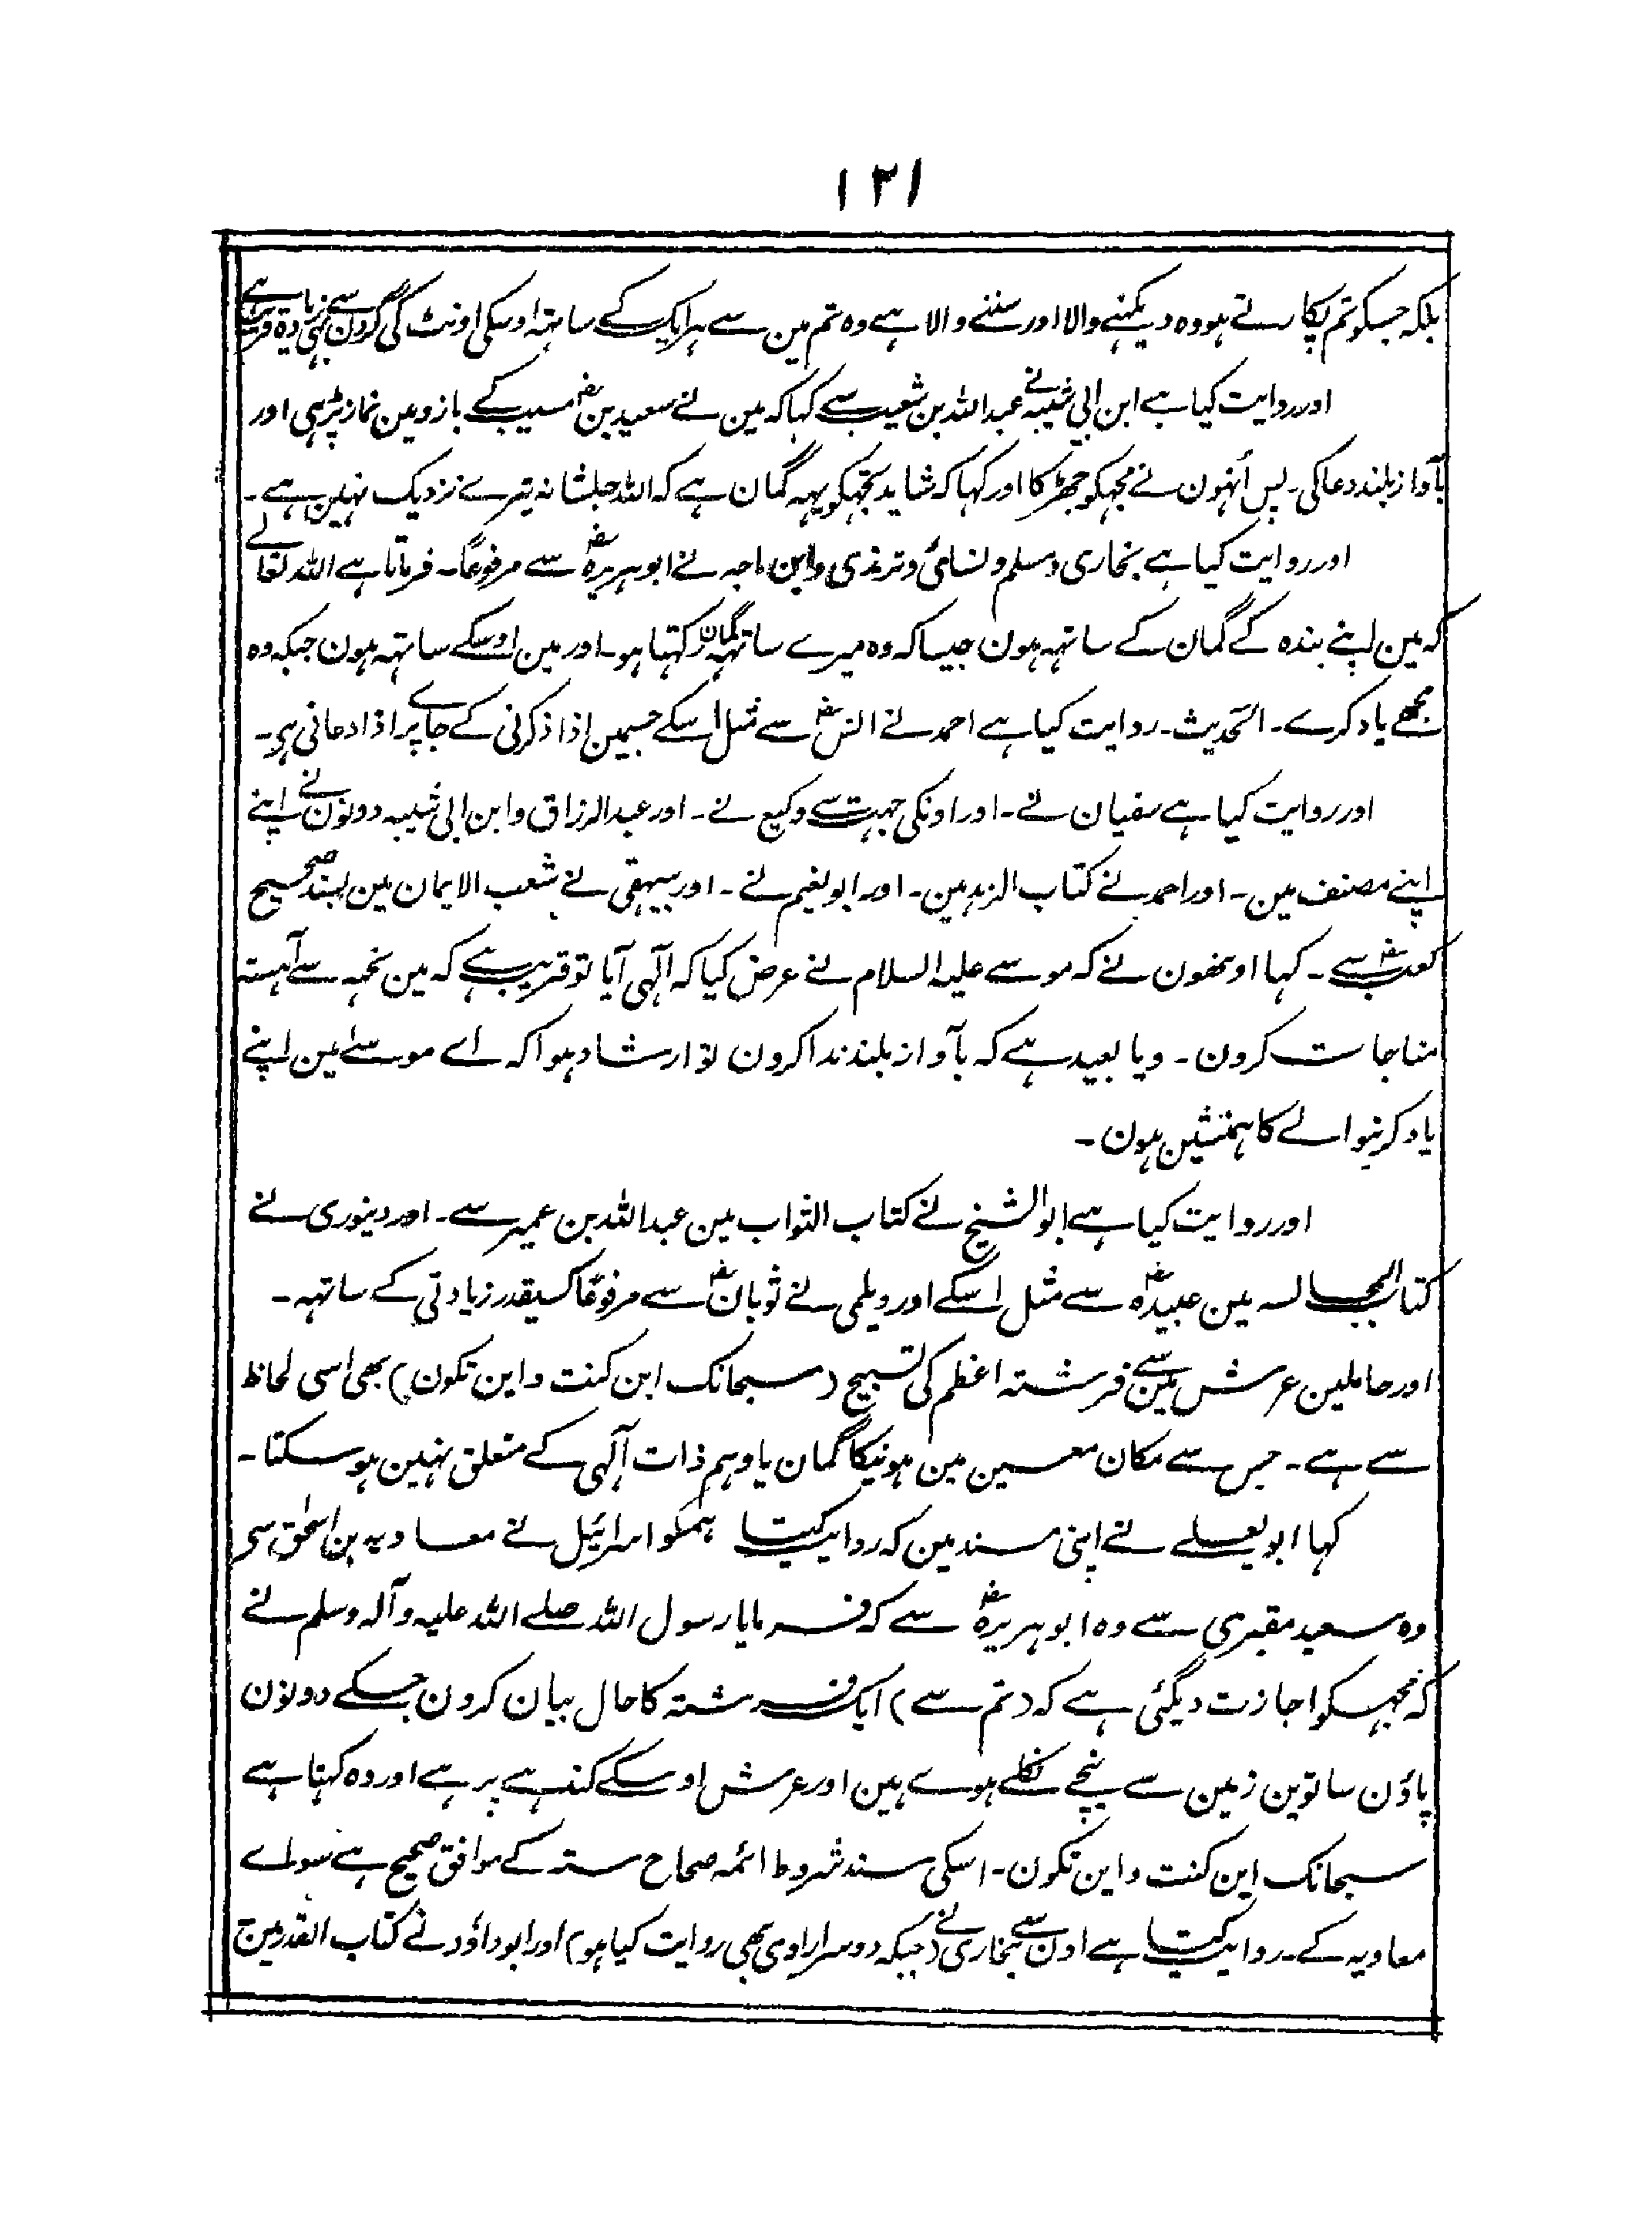 ١٢١
بلکہ جسکو تم پکارتے ہو وہ دیکھنے والا اور سننے والا ہے وہ تم مین سے ہر ایک کے ساتہہ اوسکی اونٹ کی گردن سے بہی زیادہ قریب ہے
اور روایت کیا ہے ابن ابی شیبہ نے عبداللہ بن شعیب سے کہا کہ مین نے سعید بن مسیب کے بازو مین نماز پڑہی اور
بآواز بلند دعا کی۔ پس اُنہون نے مجہکو جھڑکا اور کہا کہ شاید تجہکو یہہ گمان ہے کہ اللہ جلشانہ تیرے نزدیک نہین ہے۔
اور روایت کیا ہے بخاری و مسلم و نسائی و ترمذی وابن ماجہ نے ابوہریرہؓ سے مرفوعًا۔ فرماتا ہے اللہ تعالے
کہ مین اپنے بندہ کے گمان کے ساتہہ ہون جیسا کہ وہ میرے ساتہہ گمان رکہتا ہو۔ اور مین اوسکے ساتہہ ہون جبکہ وہ
مجھے یاد کرے۔ الحدیث۔ روایت کیا ہے احمد نے انسؓ سے مثل اسکے جسمین اذا ذکرنی کے جاے پر اذا دعانی ہی۔
اور روایت کیا ہے سفیان نے۔ اور اونکی جہت سے وکیع نے۔ اور عبدالرزاق وابن ابی شیبہ دونون نے اپنے
اپنے مصنف مین۔ اور احمد نے کتاب الزہد مین۔ اور ابو نعیم نے۔ اور بیہقی نے شعب الایمان مین بسند صحیح
کعبؓ سے۔ کہا اونھون نے کہ موسے علیہ السلام نے عرض کیا کہ الٓہی آیا تو قریب ہے کہ مین تجہہ سے آہستہ
مناجات کرون۔ ویا بعید ہے کہ بآواز بلند ندا کرون تو ارشاد ہوا کہ اے موسےٰ مین اپنے
یاد کرنیوالے کا ہمنشین ہون۔
اور روایت کیا ہے ابو الشیخ نے کتاب الثواب مین عبداللہ بن عمیر سے۔ اور دینوری نے
کتاب المجالسہ مین عبیدہؓ سے مثل اسکے اور دیلمی نے ثوبانؓ سے مرفوعًا کسیقدر زیادتی کے ساتہہ۔
اور حاملین عرش مین سے فرشتہ اعظم کی تسبیح (سبحانک این کنت و این تکون) بھی اسی لحاظ
سے ہے۔ جس سے مکان معین مین ہونیکا گمان یا وہم ذات الٓہی کے متعلق نہین ہو سکتا۔
کہا ابو یعلے نے اپنی مسند مین کہ روایت کیتا ہمکو اسرائیل نے معاویہ بن اسحٰق سی
وہ سعید مقبری سے وہ ابو ہریرہؓ سے کہ فرمایا رسول اللہ صلے اللہ علیہ وآلہ وسلم نے
کہ مجہکو اجازت دیگئی ہے کہ (تم سے) ایک فرشتہ کا حال بیان کرون جسکے دونون
پاؤن ساتوین زمین سے نیچے نکلے ہوے ہین اور عرش اوسکے کندہے پر ہے اور وہ کہتا ہے
سبحانک این کنت و این تکون۔ اسکی سند شروط ائمہ صحاح ستہ کے موافق صحیح ہے سواے
معاویہ کے۔ روایت کیتا ہے اون سے بخاری نے (جبکہ دوسرا راوی بھی روایت کیا ہو) اور ابوداؤد نے کتاب القدر مین